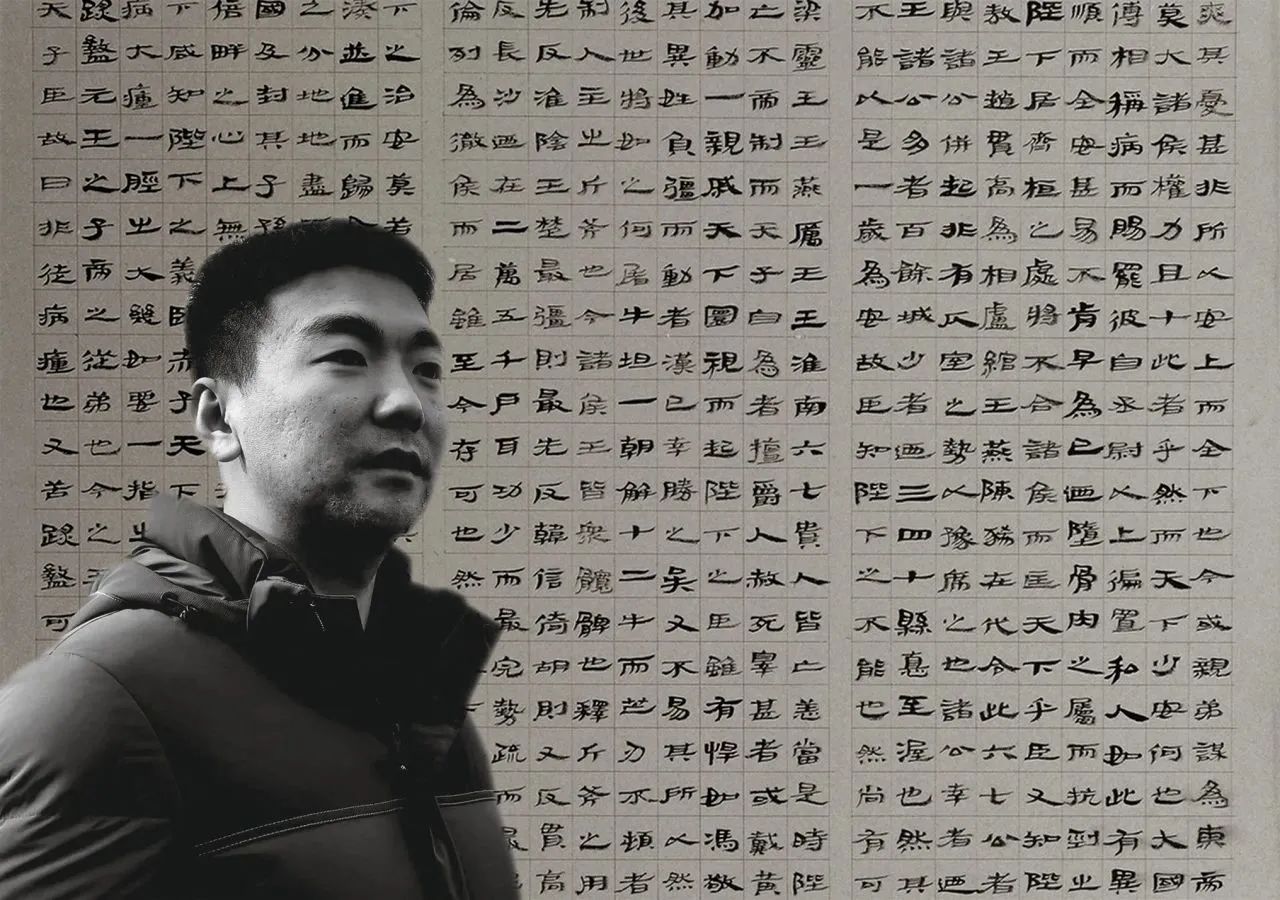 爽其憂甚非所以安上而全下也今或親弟謀為東帝
莫大諸侯權力且十此者乎然而天下少安何也大國
傅相稱病而賜罷彼自丞尉以上徧置私人如此有異
順而全安甚易不肯早為已迺墮骨肉之屬而抗剄之
陛下居齊桓之處將不合諸侯而匡天下乎臣又知陛
敖王趙貫高為相盧綰王燕陳豨在代令此六七公者
與諸公併起非有仄室之勢以豫席之也諸公幸者迺
王諸公多者百餘城少者迺三四十縣悳至渥也然其
不能以是一歲為安故臣知陛下之不能也然尚有可
梁靈王王燕厲王王淮南六七貴人皆亡恙當是時陛
亡不帝制而天子自為者擅爵人赦死辠甚者或戴黃
加動一親戚天下圜視而起陛下之臣雖有悍如馮敬
其異姓負彊而動者漢已幸勝之矣又不易其所以然
後世將如之何屠牛坦一朝解十二牛而芒刃不頓者
制人主之斤斧也今諸侯王皆衆髖髀也釋斤斧之用
先反淮陰王楚最彊則最先反韓信倚胡則又反貫高
反長沙迺在二萬五千戶耳功少而最完勢疏而最
倫列為徹侯而居雖至今存可也然
下之治安莫若
湊並進而歸
之分地地盡而
國及封其子孫
倍畔之心上無
下咸知陛下之義臥赤子天下
病大瘇一脛之大幾如要一指之
盭元王之子帝之從弟也今之王
天子臣故曰非徒病瘇也又苦盭可